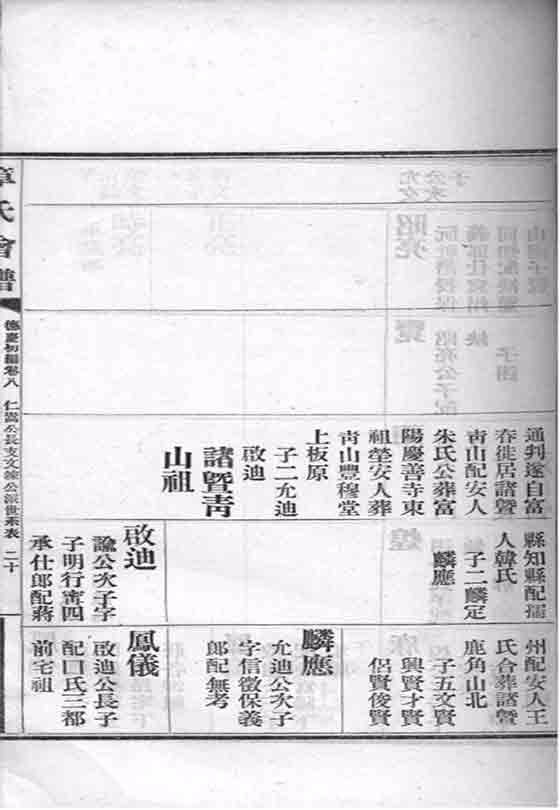 通判遂自富
春徙居諸曁
青山配安人
朱氏公葬富
陽慶善寺東
祖塋安人葬
青山豐穆堂
上板原
子二允迪
啟迪
諸曁青
山祖
縣知縣配孺
人韓氏
子二麟定
麟應
啟迪
諭公次子字
子明行甯四
承仕郎配蔣
州配安人王
氏合葬諸曁
鹿角山北
子五文賢
興賢才賢
侶賢俊賢
麟應
允迪公次子
字信徵保義
郎配無考
鳳儀
啟迪公長子
配口氏三都
前宅祖
章氏會譜
德慶初編卷八
仁嵩公長支文諫公派世系表
二十